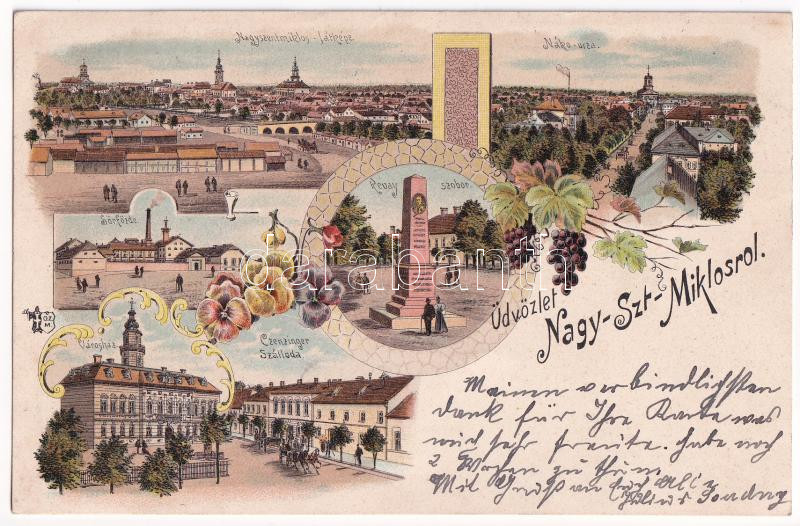 Nagyszentmiklos-látképe
Náko-utza.
Révay szobor.
Sörfőzde
Városház
Czenzinger
Szálloda
Üdvözlet
Nagy-Szt-Miklosrol.
darabanth
Meinen verbindlichsten
dank für Ihre Karte was
mich sehr freute. habe noch
2 Wochen zu thun
Mit Gruß an Euch Alle
Julius